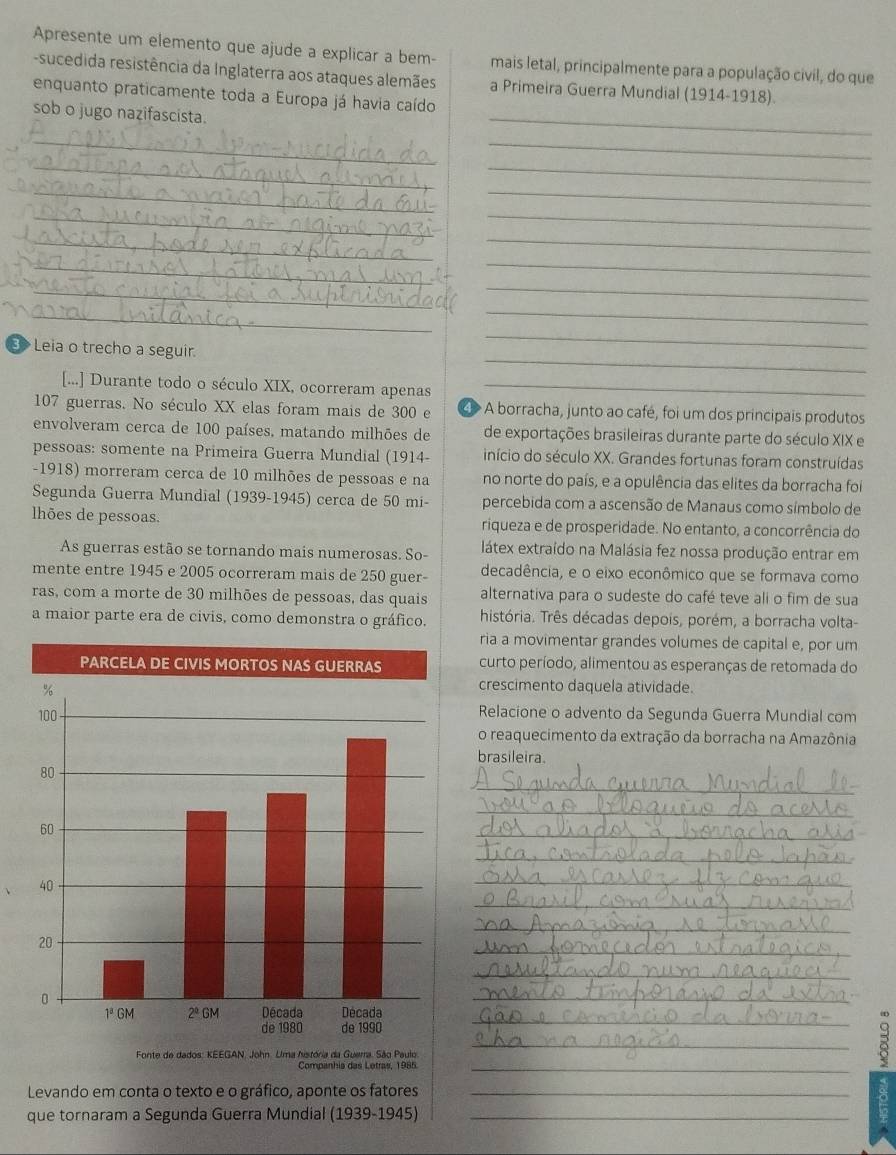 Apresente um elemento que ajude a explicar a bem-
-sucedida resistência da Inglaterra aos ataques alemães
enquanto praticamente toda a Europa já havia caído
sob o jugo nazifascista.
A resistência bem-sucedida da
Inglaterra aos ataques alemães,
enquanto a maior parte da Eu-
ropa sucumbia ao regime nazi
fascista, pode ser explicada
por diversos fatores, mas um e-
lemento crucial foi a superioridade
naval britânica.
3 Leia o trecho a seguir.
[...] Durante todo o século XIX, ocorreram apenas
107 guerras. No século XX elas foram mais de 300 e
envolveram cerca de 100 países, matando milhões de
pessoas: somente na Primeira Guerra Mundial (1914-
-1918) morreram cerca de 10 milhões de pessoas e na
Segunda Guerra Mundial (1939-1945) cerca de 50 mi-
lhões de pessoas.
As guerras estão se tornando mais numerosas. So-
mente entre 1945 e 2005 ocorreram mais de 250 guer-
ras, com a morte de 30 milhões de pessoas, das quais
a maior parte era de civis, como demonstra o gráfico.
PARCELA DE CIVIS MORTOS NAS GUERRAS
%
100
80
60
40
20
0
1ª GM
2ª GM
Década
de 1980
Década
de 1990
Fonte de dados: KEEGAN, John. Uma história da Guerra. São Paulo:
Companhia das Letras, 1995.
Levando em conta o texto e o gráfico, aponte os fatores
que tornaram a Segunda Guerra Mundial (1939-1945)
mais letal, principalmente para a população civil, do que
a Primeira Guerra Mundial (1914-1918).
4 A borracha, junto ao café, foi um dos principais produtos
de exportações brasileiras durante parte do século XIX e
início do século XX. Grandes fortunas foram construídas
no norte do país, e a opulência das elites da borracha foi
percebida com a ascensão de Manaus como símbolo de
riqueza e de prosperidade. No entanto, a concorrência do
látex extraído na Malásia fez nossa produção entrar em
decadência, e o eixo econômico que se formava como
alternativa para o sudeste do café teve ali o fim de sua
história. Três décadas depois, porém, a borracha volta-
ria a movimentar grandes volumes de capital e, por um
curto período, alimentou as esperanças de retomada do
crescimento daquela atividade.
Relacione o advento da Segunda Guerra Mundial com
o reaquecimento da extração da borracha na Amazônia
brasileira.
A Segunda Guerra Mundial le-
vou ao bloqueio do acesso
dos aliados à borracha asiá-
tica, controlada pelo Japão.
Essa escassez fez com que
o Brasil, com suas reservas
na Amazônia, se tornasse
um fornecedor estratégico,
resultando num reaqueci-
mento temporário da extra-
ção e comércio da borra-
cha na região.
HISTÓRIA MÓDULO 8